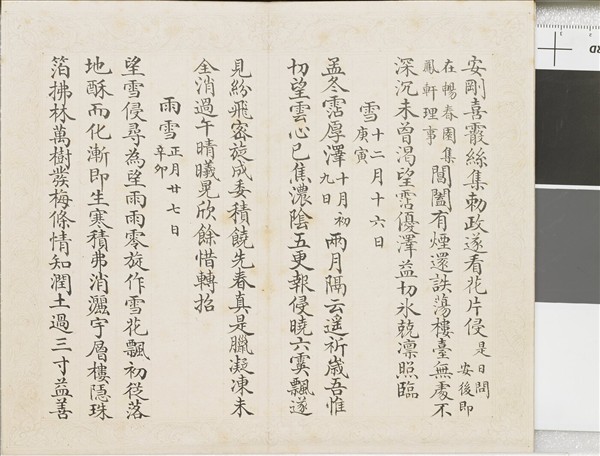 安剛喜霰絲集勅政遂看花片侵是日問安後即
在暢春園集鳳軒理事閶闔有煙還詄蕩樓臺無處不
深沉未曾渴望霑優澤益切氷兢凜照臨
雪十二月十六日庚寅
孟冬霑厚澤十月初九日兩月隔云遙祈歲吾惟
切望雲心已焦濃陰五更報侵曉六霙飄遂
見紛飛密旋成委積饒先春真是臘凝凍未
全消過午晴曦晃欣餘惜轉招
雨雪正月廿七日辛卯
望雪侵尋為望雨雨零旋作雪花飄初從落
地酥而化漸即生寒積弗消灑宇層樓隱珠
箔拂林萬樹發梅條情知潤土過三寸益善